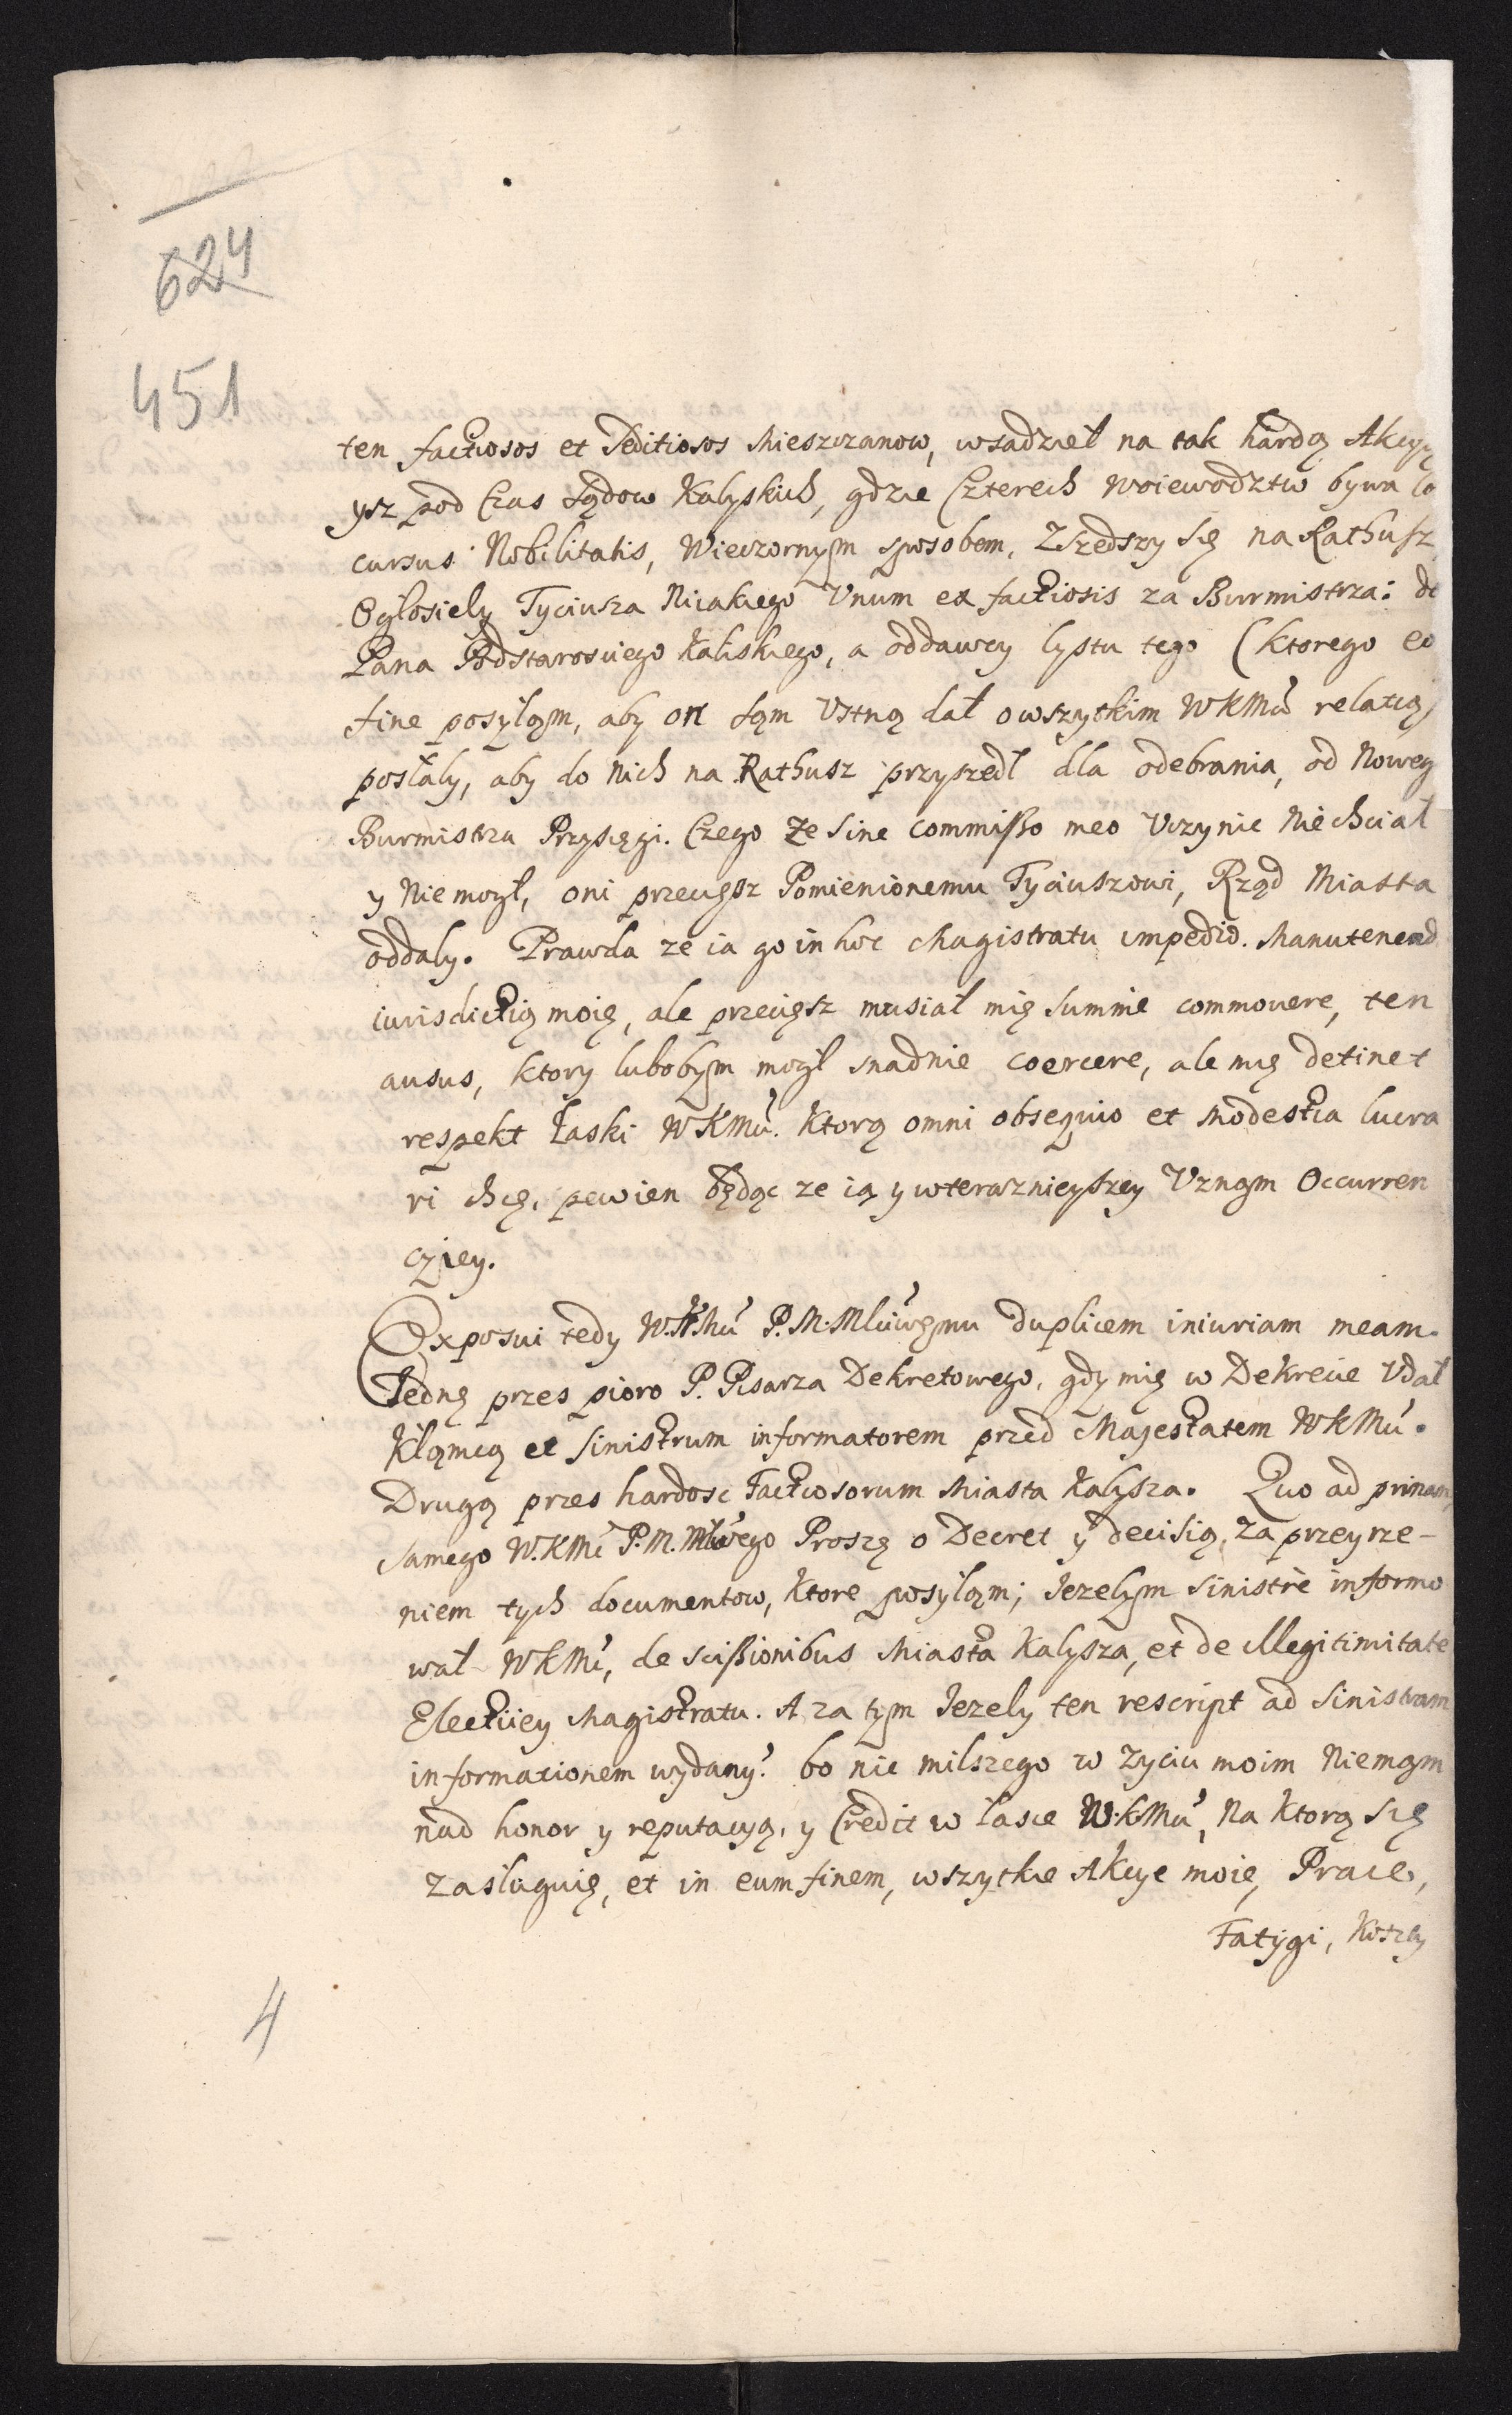 624
451
ten factiosos et Seditiosos Mieszczanow, wsadzieł na tak hardą Akcyą
ysz pod Czas Sądow Kalyskich, gdzie Czterech Woiewodztw bywa Co
cursus Nobilitatis, Wieczornym sposobem, Zszedszy się na Rathusz,
Ogłosiely Tyciusza Niiakiego Vnum ex factiosis za Burmistrza: do
Pana Podstarosciego Kaliskiego, a oddawcy lystu tego (ktorego eo
fine posyłąm, aby on sąm Vstną dał o wszytkim WKMci relatią)
posłały, aby do nich na Rathusz przyszedł dla odebrania, od Noweg
Burmistrza Przysięgi. Czego ze sine commißo meo Vczynic Niechciał
y Niemogł, oni przeciesz Pomienionemu Tyciuszowi, Rząd Miasta
oddaly. Prawda ze ia go in hoc Magistratu impedio. Manutenend
iurisdictią moię, ale przeciesz musiał mię summe commouere, ten
ausus, ktory lubobym mogł snadnie coercere, ale mię detinet
respekt Łaski WKMci. Ktorą omni obsequio et modestia lucra
ri chcę, pewien będąc ze ią y wterasznieyszey Vznąm Occurren
cyiey.
Exposui tedy W.KMci P.M.Mlciwęmu duplicem iniuriam meam.
Jednę przes pioro P. Pisarza Dekretowego, gdy mię w Dekrecie Vdał
Kłąmcą et sinistrum informatorem przed Majestatem WKMci.
Drugą przes hardosc Factiosorum Miasta Kalysza. Quo ad primam,
samego W.KMci P.M.Młciwego Proszę o Decret y decisią, za przeyrze-
niem tych documentow, ktore posyłąm; Jezelym sinistrè informo
wał WKMci, de scißionibus Miasta Kalysza, et de illegitimitate
Electiiey Magistratu. A za tym Jezely ten rescript ad sinistram
informationem wydany? bo nic milszego w zyciu moim Niemąm
nad honor y reputacyą, y Credit w łasce W.KMci, Na ktorą się
zasługuię, et in eum finem, wszytkie Akcye moie, Prace,
Fatygi, Koszty
4